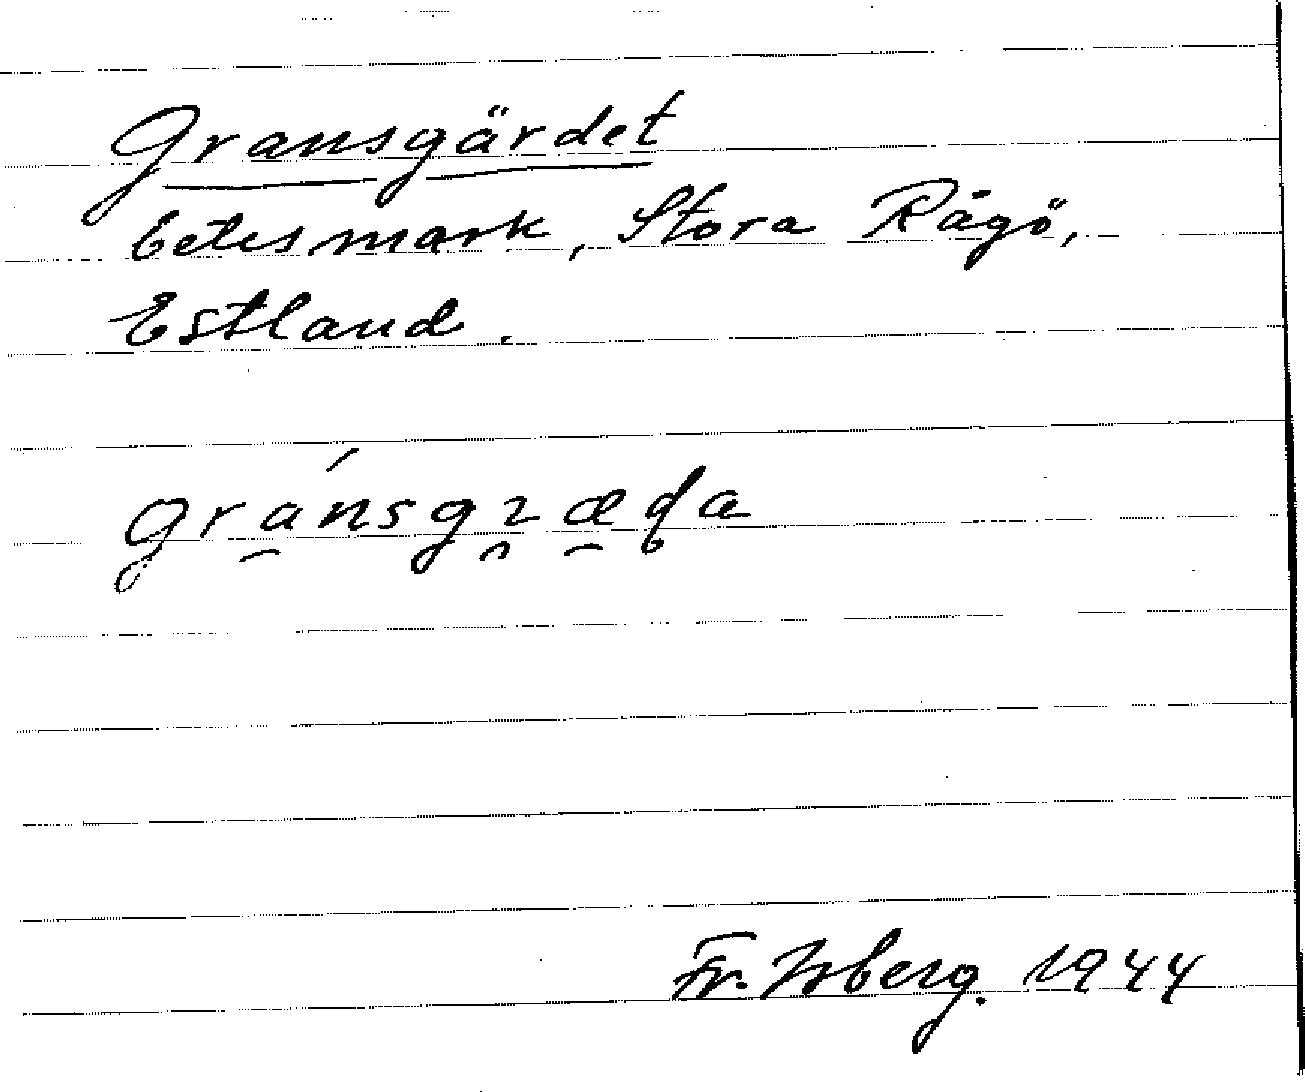 Gransgärdet
betesmark, Stora Rågö,
Estland.
Fr. Isberg. 1944